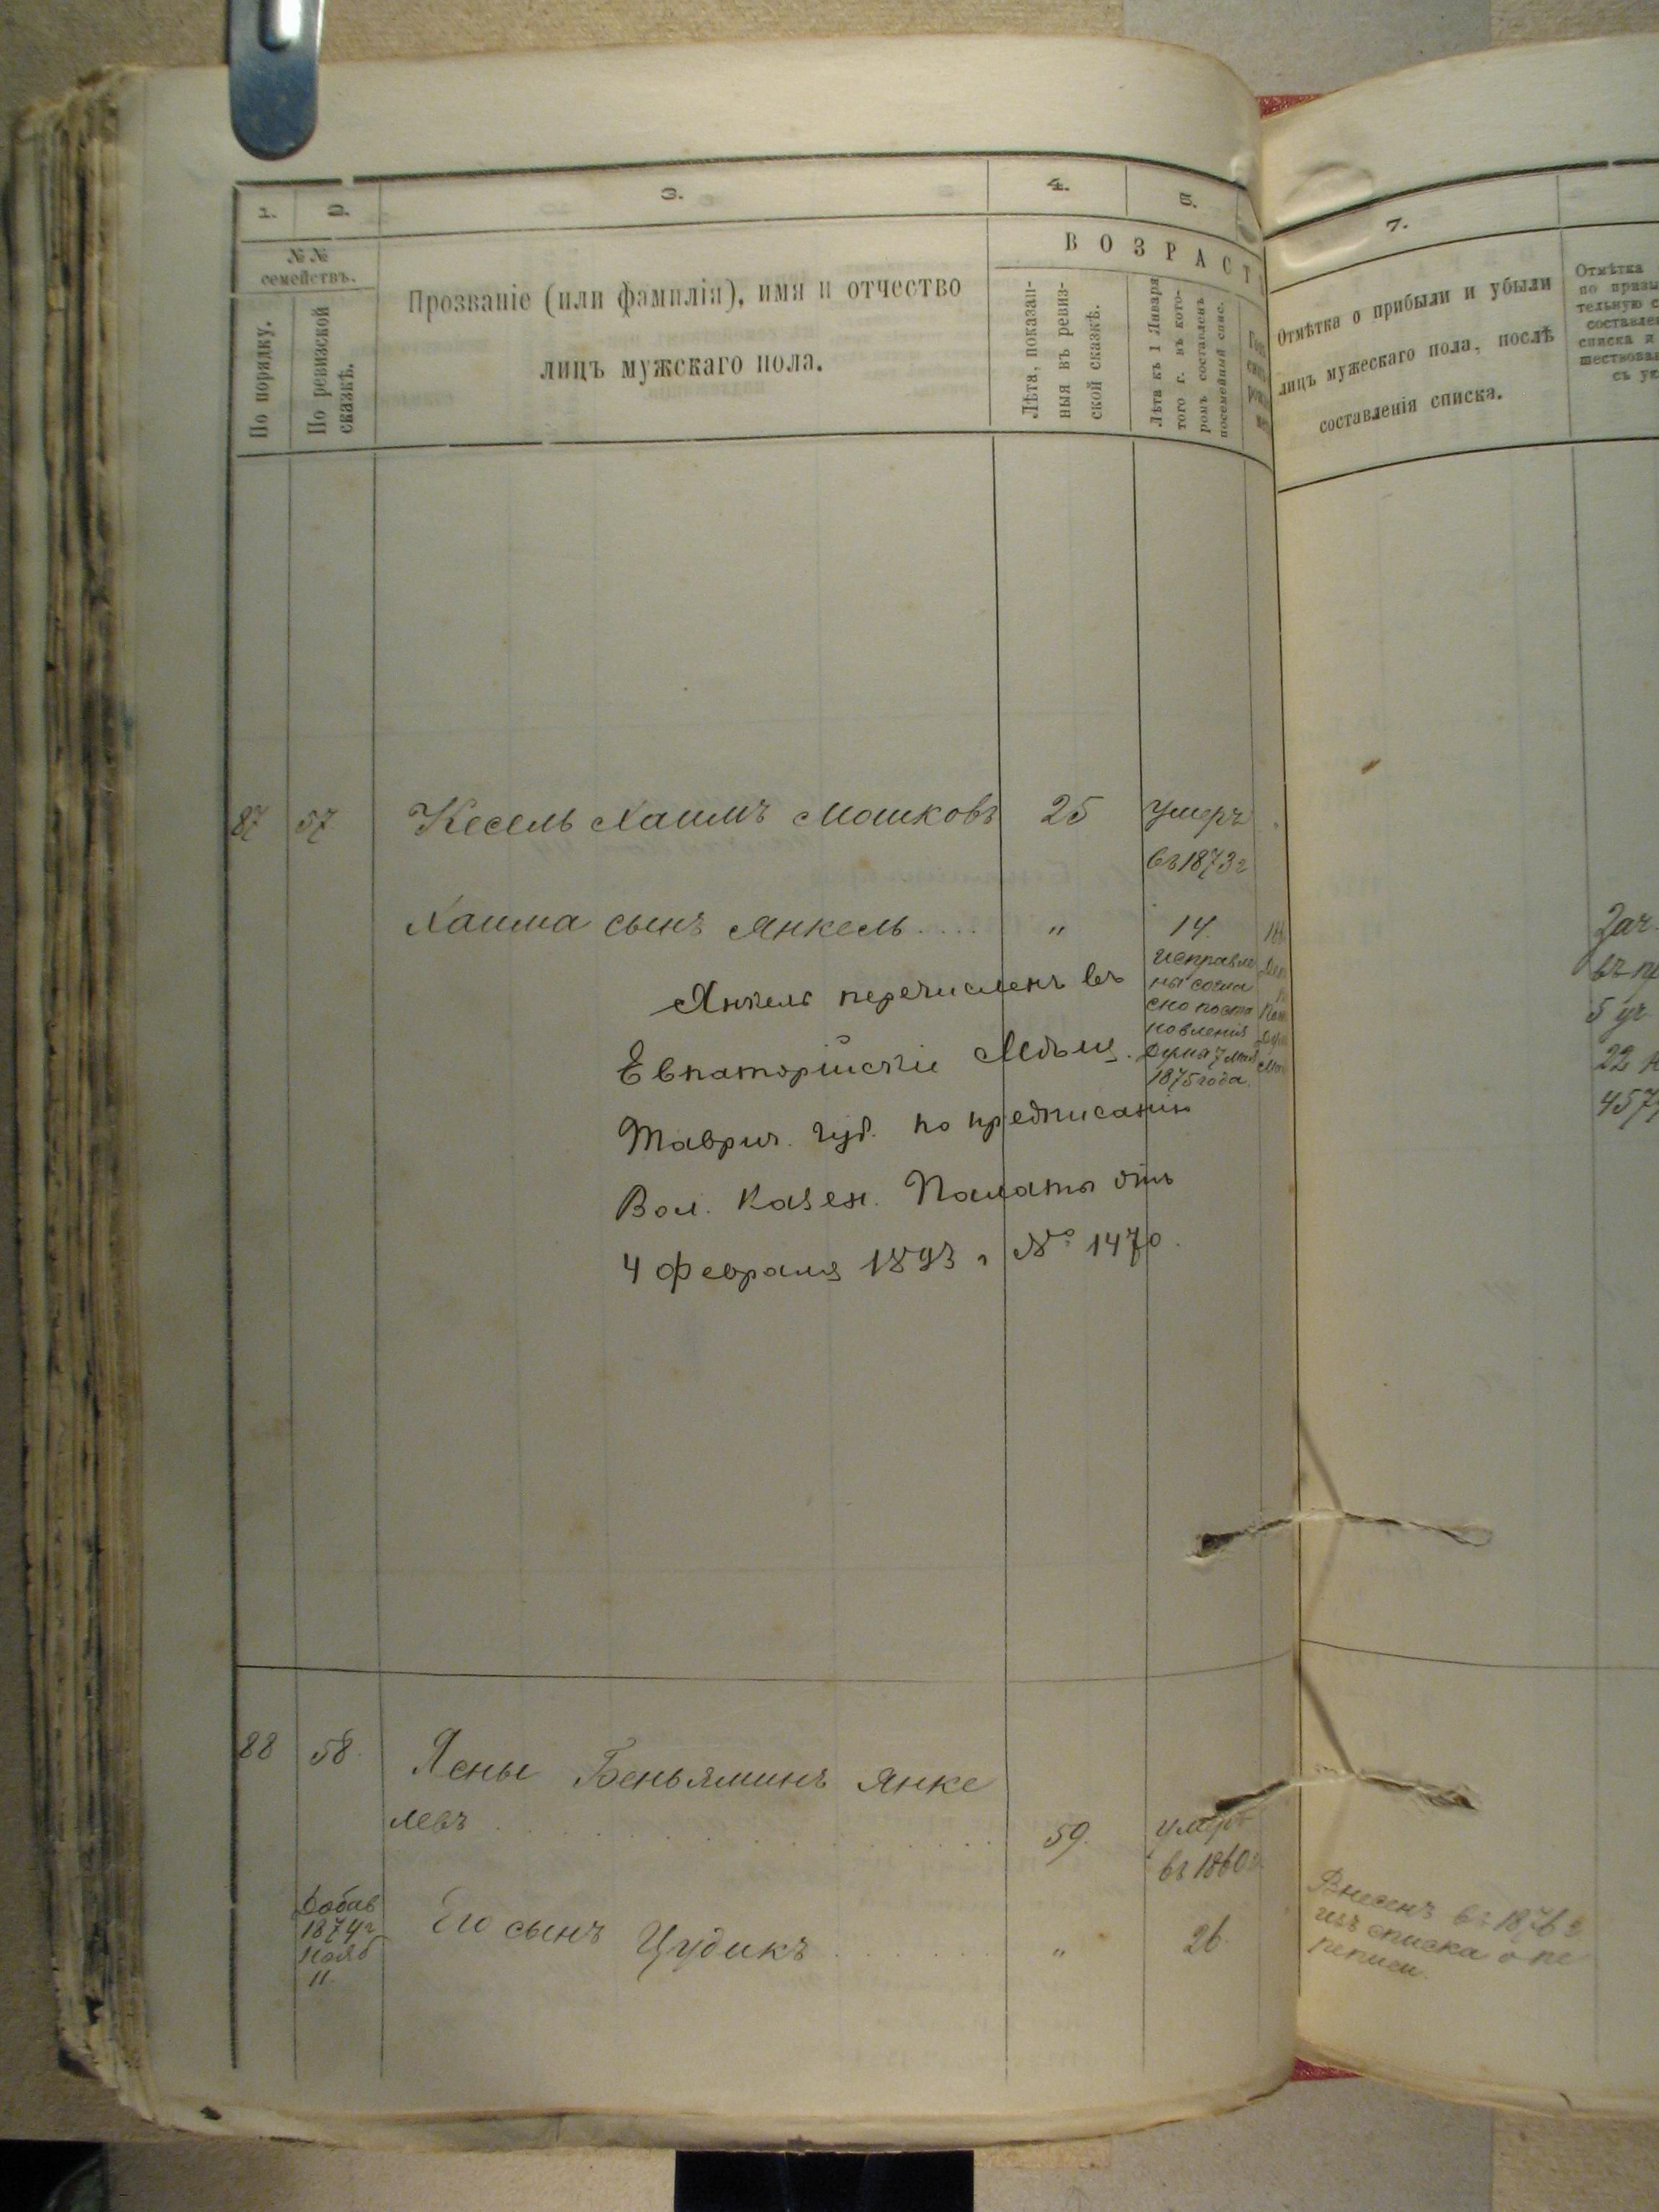 1.
2.
3.
4.
5.
№№
семействъ.
По порядку.
По ревизской
сказкѣ.
Прозваніе (или фамилія), имя и отчество
лицъ мужскаго пола.
ВОЗРАСТ
Лѣта, показан-
ныя въ ревиз-
ской сказкѣ.
Лѣта къ 1 Января
того г. въ кото-
ромъ составленъ
посемейный спис.
7.
Отмѣтка о прибыли и убыли
лицъ мужескаго пола, послѣ
составленія списка.
Отмѣтка
по призы
тельную с
составле
списка и
шествова
съ ук
87 57 Кесель Хаимъ Мошковъ 25 Умеръ
въ 1873 г
Хаима сынъ Янкель . . . . " 14.
исправле
ны согла
сно поста
новленія
Думы 7 мая
1875 года.
Янкель перечисленъ въ
Евпаторійскіе Мѣщ.
Таврич. губ. по предписанію
Вол. Казен. Палаты отъ
4 Февраля 1893 г № 1470.
Зач.
въ пр
5 уч
22 Н
457
88 58. Ясны Беньяминъ Янке
левъ . . . . 59. умеръ
въ 1860 г.
Добав
1874 г
Нояб
11.
Его сынъ Цудикъ . . . . " 26.
Внесенъ въ 1876 г
изъ списка о пе
реписи.